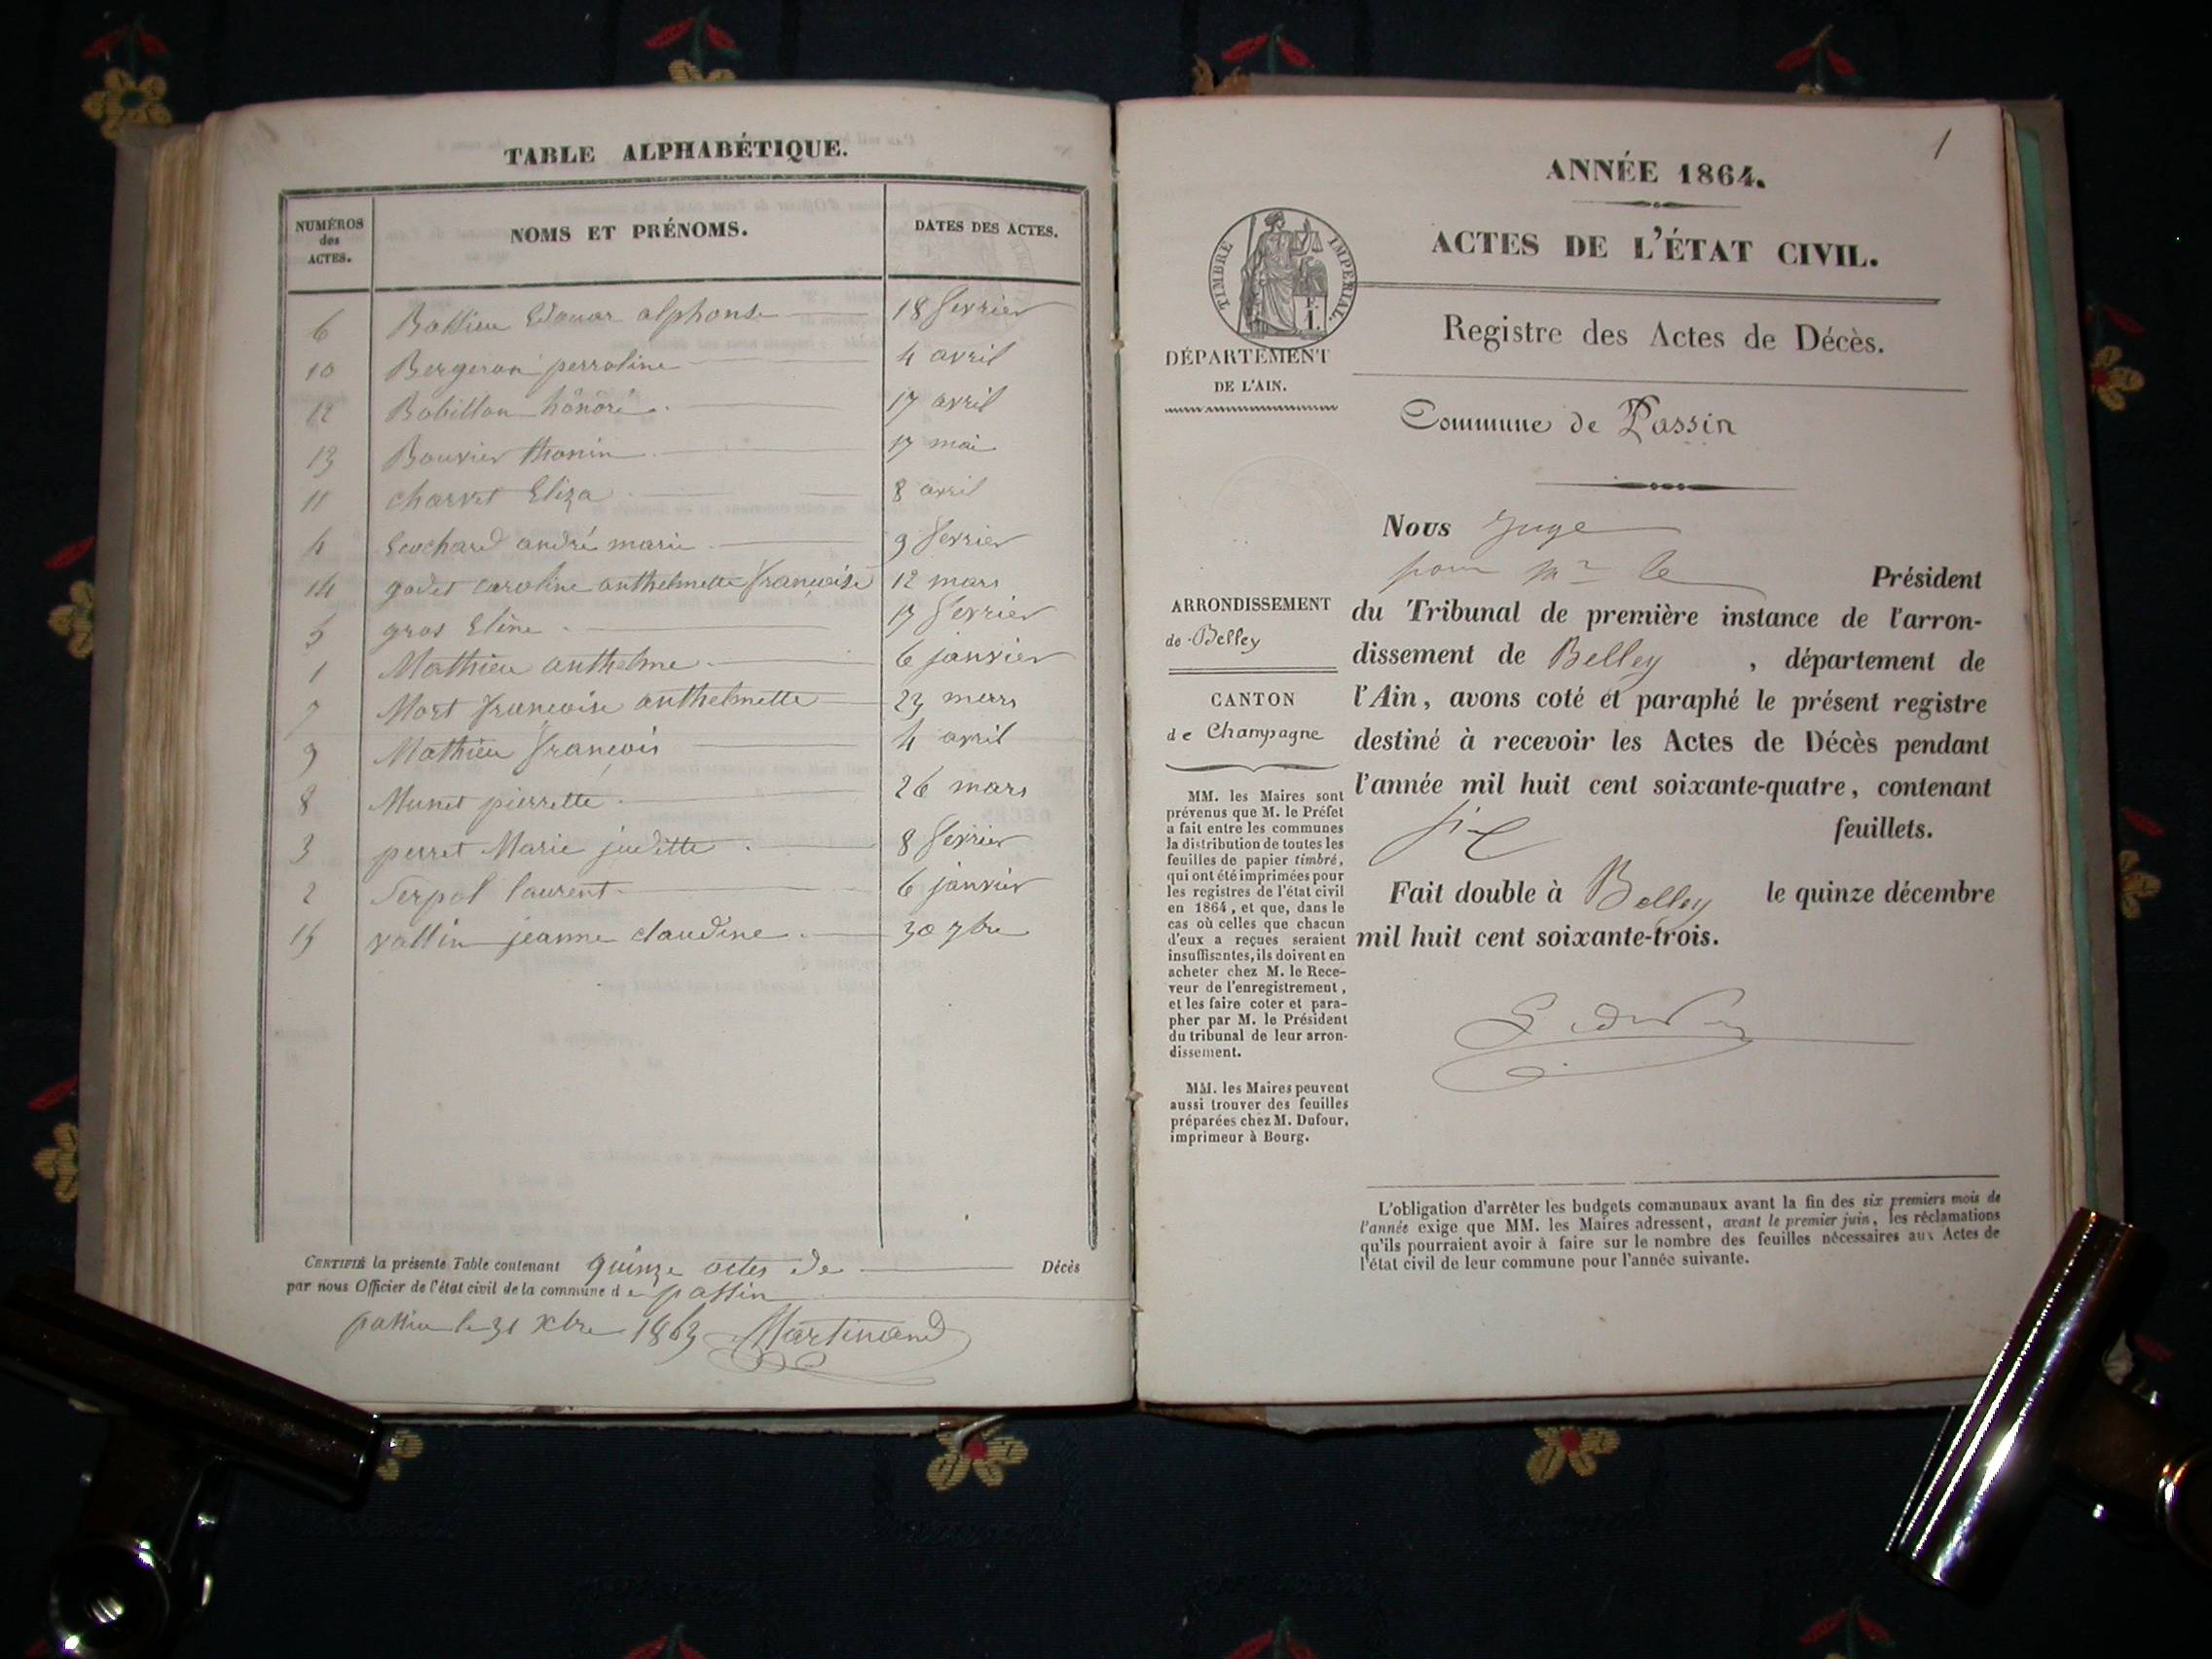 TABLE ALPHABÉTIQUE.
NUMÉROS
des
ACTES.
NOMS ET PRÉNOMS.
DATES DES ACTES.
6 alphonse 18 fevrier
10 Bergeron perroline 4 avril
12 Bobillon hônôré 17 avril
13 Bouvier thonin 17 mai
11 charvet Eliza 8 avril
4 andré marie 9 fevrier
14 godet caroline anthelmette françoise 12 mars
5 gros Eléne 17 fevrier
1 Mathieu anthelme 6 janvier
7 Mort françoise anthelmette 23 mars
9 Mathieu françois 4 avril
8 Munet pierrette 26 mars
3 perret Marie juditte 8 fevrier
2 Serpol laurent 6 janvier
15 vallin jeanne claudine 30 7bre
CERTIFIÉ la présente Table contenant quinze actes de Décès
par nous Officier de l'état civil de la commune de passin
passin le 31 Xbre 1863 Martinand
1
ANNÉE 1864.
ACTES DE L'ÉTAT CIVIL.
TIMBRE IMPÉRIAL
DÉPARTEMENT
DE L'AIN.
Registre des Actes de Décès.
Commune de Passin
Nous Juge
pour Mr le Président
ARRONDISSEMENT
de Belley
CANTON
de Champagne
du Tribunal de première instance de l'arron-
dissement de Belley, département de
l'Ain, avons coté et paraphé le présent registre
destiné à recevoir les Actes de Décès pendant
l'année mil huit cent soixante-quatre, contenant
six feuillets.
Fait double à Belley le quinze décembre
mil huit cent soixante-trois.
MM. les Maires sont
prévenus que M. le Préfet
a fait entre les communes
la distribution de toutes les
feuilles de papier timbré,
qui ont été imprimées pour
les registres de l'état civil
en 1864, et que, dans le
cas où celles que chacun
d'eux a reçues seraient
insuffisantes, ils doivent en
acheter chez M. le Rece-
veur de l'enregistrement,
et les faire coter et para-
pher par M. le Président
du tribunal de leur arron-
dissement.
MM. les Maires peuvent
aussi trouver des feuilles
préparées chez M. Dufour,
imprimeur à Bourg.
L'obligation d'arrêter les budgets communaux avant la fin des six premiers mois de
l'année exige que MM. les Maires adressent, avant le premier juin, les réclamations
qu'ils pourraient avoir à faire sur le nombre des feuilles nécessaires aux Actes de
l'état civil de leur commune pour l'année suivante.